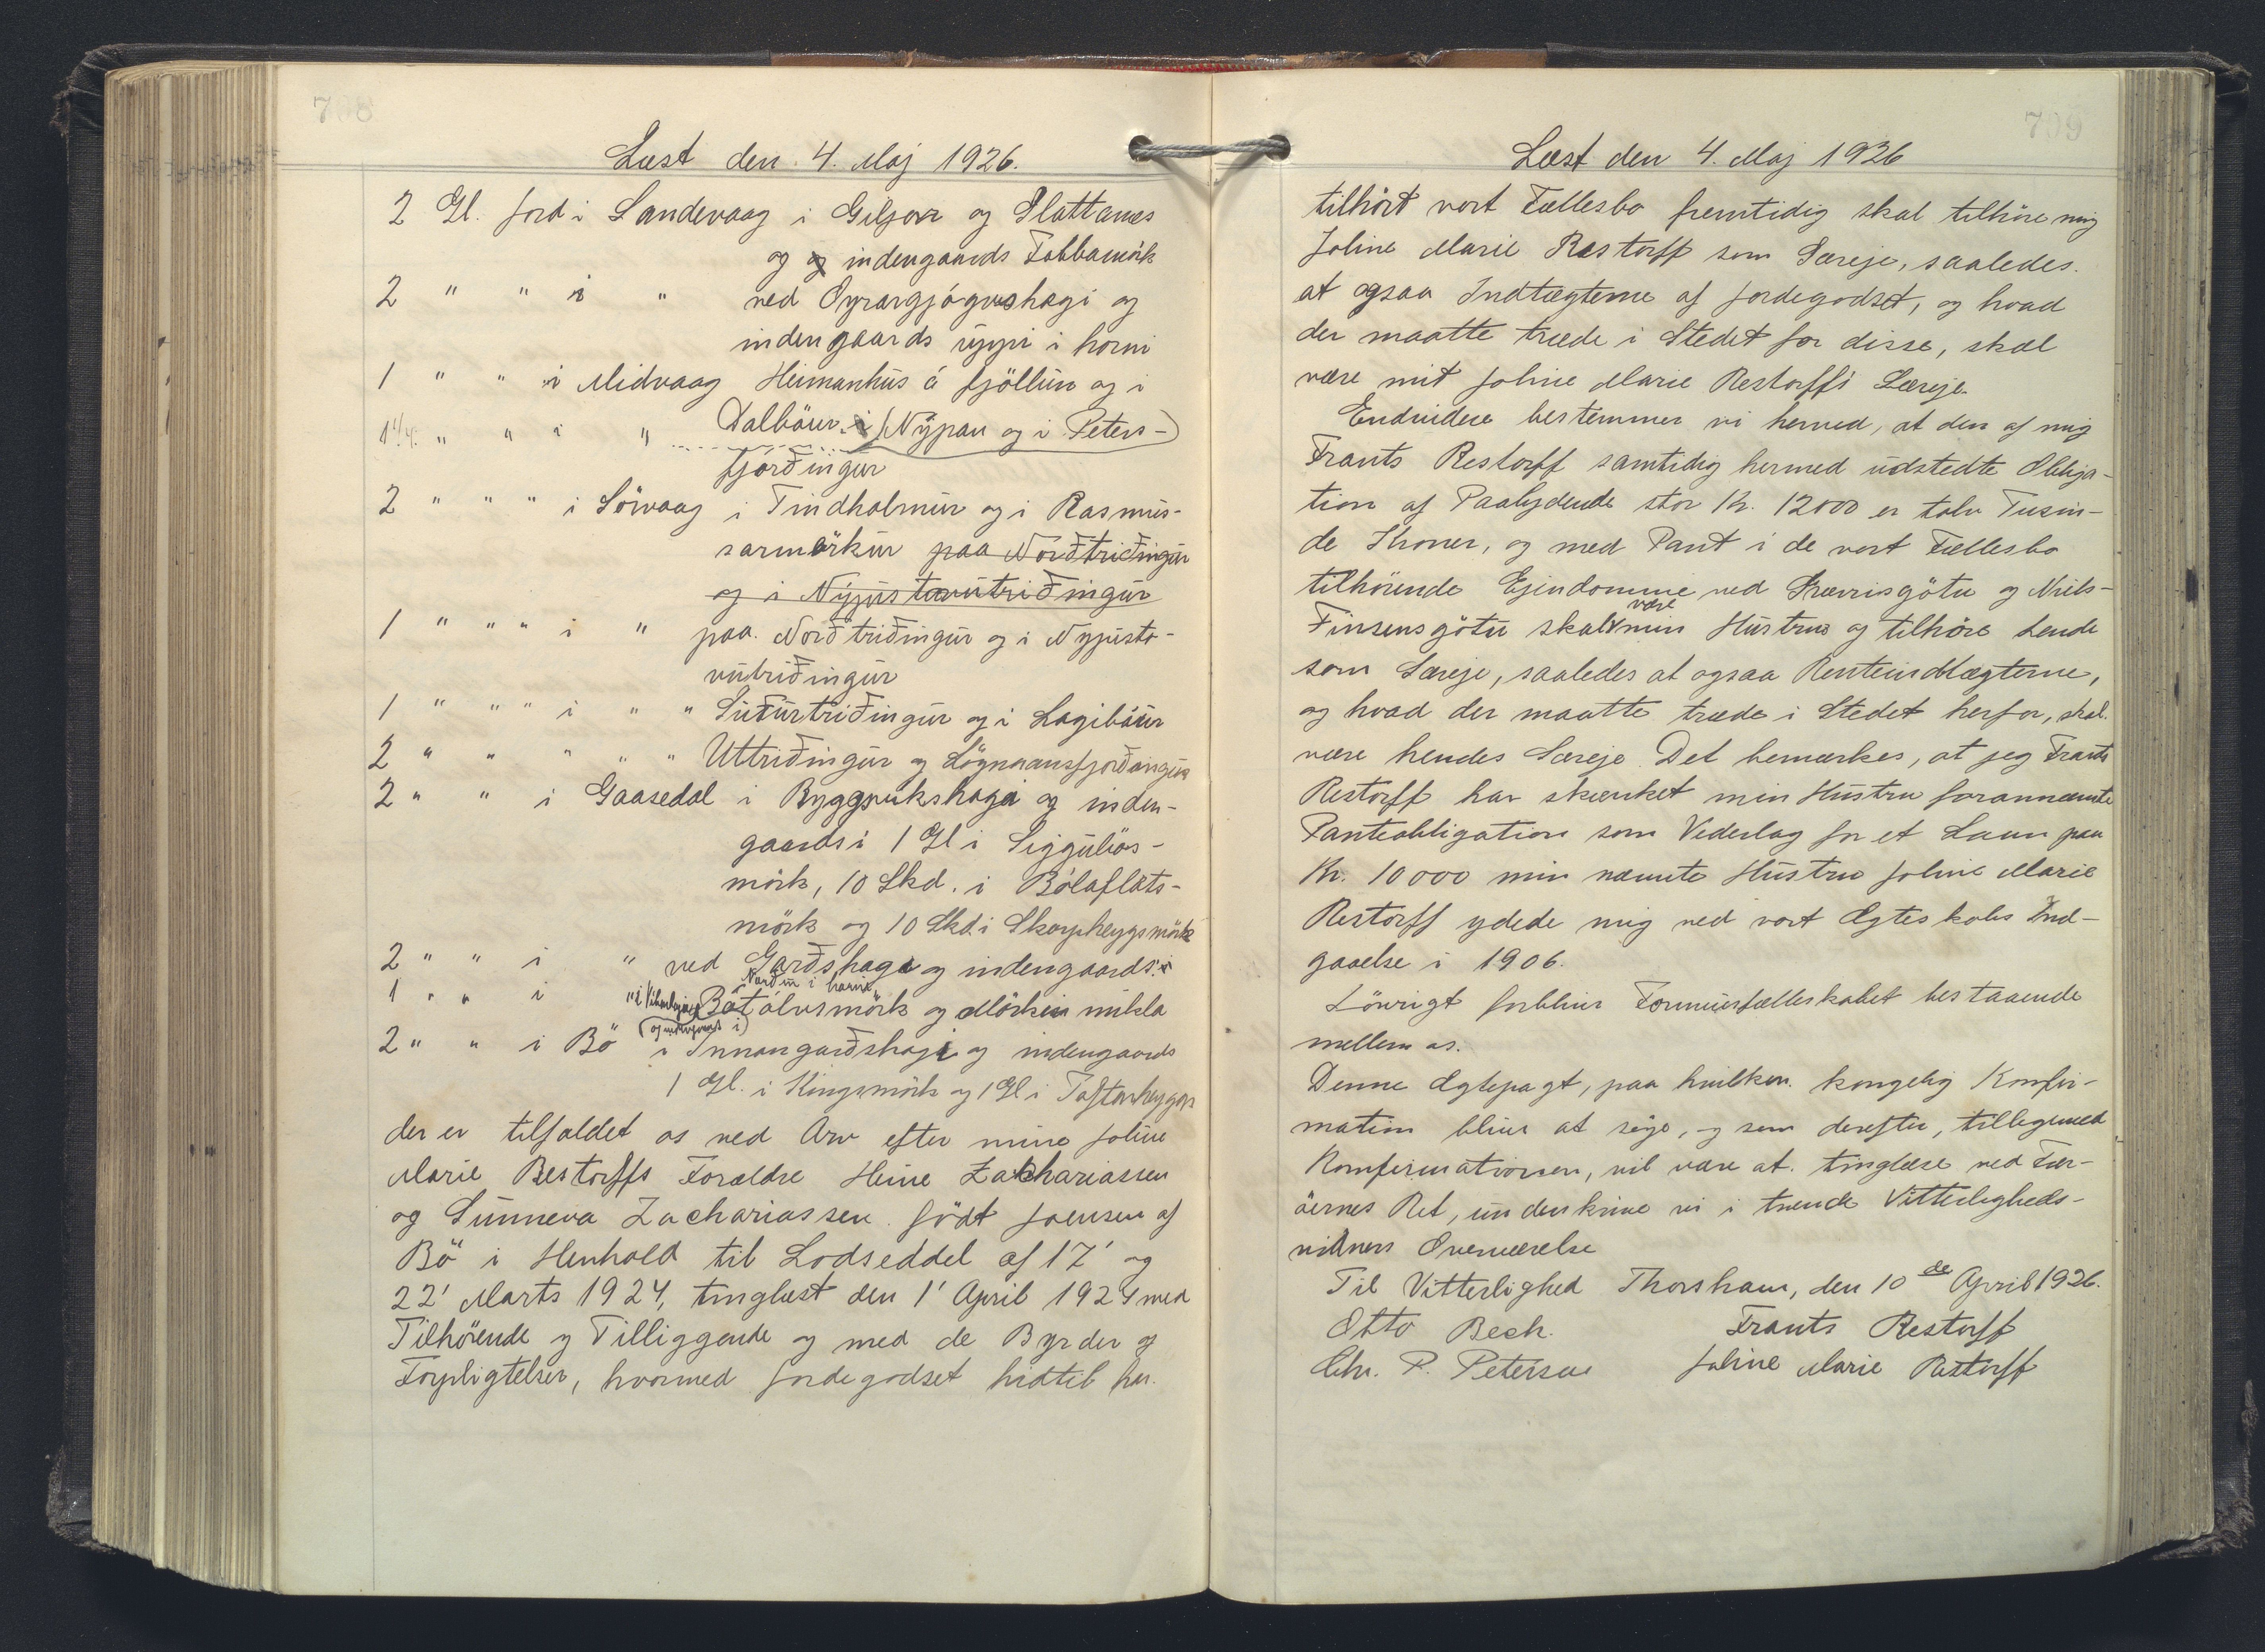 708
Læst den 4. Maj 1926.
2 Gl. Jord i Sandevaag i Giljovr og Slattanes
og og indengaards Fabbamörk
2 " " i " ved Oyrargjógvshagi og
indengaards uppi i horni
1 " " i Midvaag Heimanhús á fjöllun og i
1 1/4 " " i " Dalböur i Nýpan og i Peters-
fjórðingur
2 " " " i Sörvaag i Tindholmur og i Rasmus-
sarmörkur paa Norðtriðingur
og i Nýgjustovutriðingur
1 " " " i " paa Norðtriðingur og i Nygjusto-
vutriðingur
1 " " " i " " Suðurtriðingur og i Lagiböur
2 " " " " " Uttriðingur og Lögmansfjorðingur
2 " " i Gaasedal i Ryggpukshagi og inden-
gaards i 1 Gl i Sigguliös-
mörk, 10 Skd. i Bólaflats-
mörk og 10 Skd. i Skarpheygsmörk
2 " " i " ved Garðshagi og indengaards i
Norðuri i haru
1 " " i " i Vikarhagi Bótólvsmörk og Mörkin mikla
(og indengaards i)
2 " " i Bö i Innangarðshagi og indengaards
1 Gl. i Kingsmörk og 1 Gl i Taftarheygar
der er tilfaldet os ved Arv efter mine Joline
Marie Restorffs Forældre Heine Zakhariassen
og Sunneva Zachariassen født Joensen af
Bö i Henhold til Lodseddel af 17' og
22' Marts 1924, tinglæst den 1' April 1924 med
Tilhörende og Tilliggende og med de Byrder og
Forpligtelser, hvormed Jordegodset hidtil har
709
Læst den 4. Maj 1926
tilhört vort Fællesbo fremtidig skal tilhöre mig
Joline Marie Restorff som Særeje, saaledes
at ogsaa Indtægterne af Jordegodset, og hvad
der maatte træde i Stedet for disse, skal
være mit Joline Marie Restorffs Særeje.
Endvidere bestemmer vi herved, at den af mig
Frants Restorff samtidig hermed udstedte Obliga-
tion af Paalydende stor Kr. 12000 er tolv Tusin-
de Kroner, og med Pant i de vort Fællesbo
tilhörende Ejendomme ved Sverrisgötu og Niels-
Finsensgötu skal være min Hustrus og tilhöre hende
som Særeje, saaledes at ogsaa Renteindtægterne,
og hvad der maatte træde i Stedet herfor, skal
være hendes Særeje. Det bemærkes, at jeg Frants
Restorff har skænket min Hustru forannævnte
Panteobligation som Vederlag for et Laan paa
Kr. 10000 min nævnte Hustru Joline Marie
Restorff ydede mig ved vort Ægteskabs Ind-
gaaelse i 1906.
Lövrigt forbliver Formuefælleskabet bestaaende
mellem os.
Denne Ægtepagt, paa hvilken kongelig Konfir-
mation bliver at söge, og som derefter, tilligemed
Konfirmationen, vil være at tinglæse ved Fær-
öernes Ret, underskrive vi i tvende Vitterligheds-
vidners Overværelse
Til Vitterlighed Thorshavn, den 10de April 1926.
Otto Bech. Frants Restorff
Chr. P. Petersen Joline Marie Restorff